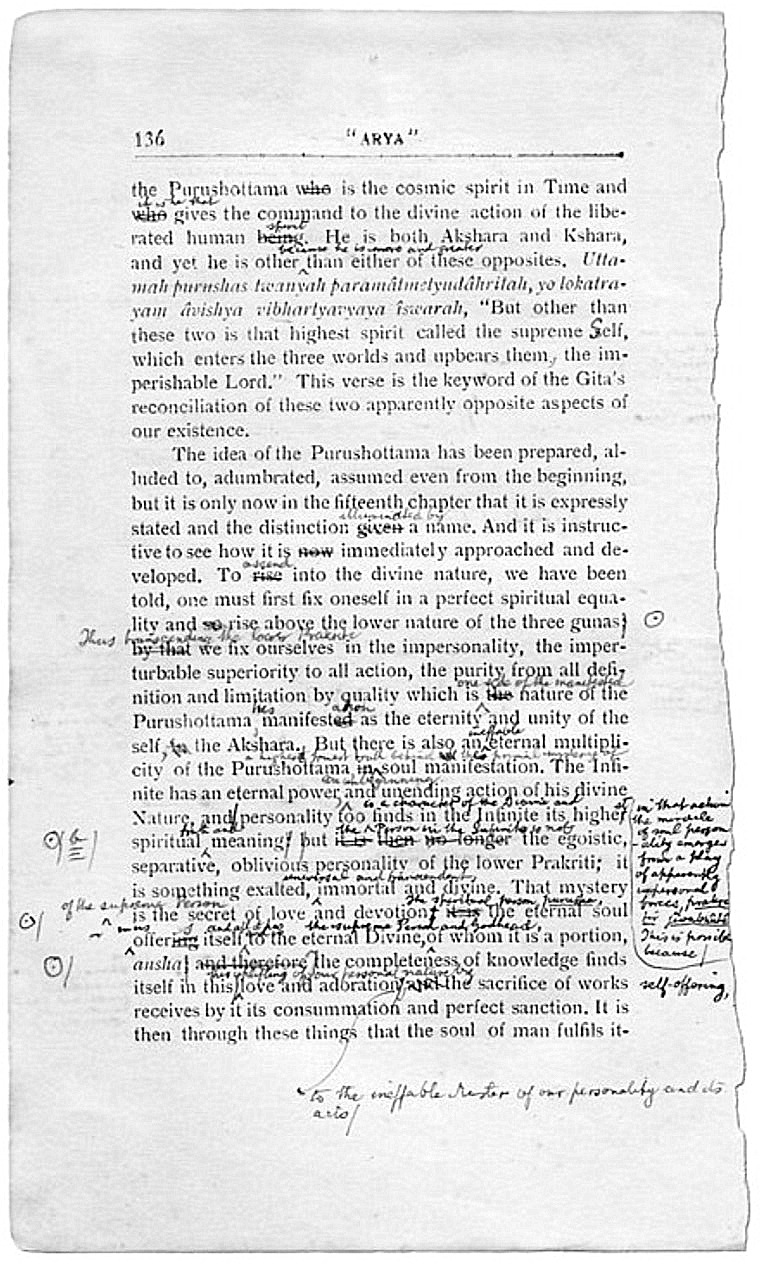 136 "ARYA"
the Purushottama who is the cosmic spirit in Time and
it is he that
who gives the command to the divine action of the libe-
spirit
rated human being. He is both Akshara and Kshara,
because he is more and greater
and yet he is other than either of these opposites. Utta-
mah purushas twanyah paramâtmetyudâhritah, yo lokatra-
yam âvishya vibhartyavyaya îswarah, "But other than
these two is that highest spirit called the supreme Self,
which enters the three worlds and upbears them, the im-
perishable Lord." This verse is the keyword of the Gita's
reconciliation of these two apparently opposite aspects of
our existence.
The idea of the Purushottama has been prepared, al-
luded to, adumbrated, assumed even from the beginning,
but it is only now in the fifteenth chapter that it is expressly
illuminated by
stated and the distinction given a name. And it is instruc-
tive to see how it is now immediately approached and de-
ascend
veloped. To rise into the divine nature, we have been
told, one must first fix oneself in a perfect spiritual equa-
lity and so rise above the lower nature of the three gunas;
Thus transcending the lower Prakriti
by that we fix ourselves in the impersonality, the imper-
turbable superiority to all action, the purity from all defi-
one side of the manifested
nition and limitation by quality which is the nature of the
Purushottama manifested as the eternity and unity of the
ineffable
self, the Akshara. But there is also an eternal multipli-
a highest truth behind
city of the Purushottama in soul manifestation. The Infi-
nite has an eternal power and unending action of his divine
is a character of the Divine and
Nature, and personality too finds in the Infinite its highest
the Person in the Infinite is not
spiritual meaning; but it is then no longer the egoistic,
separative, oblivious personality of the lower Prakriti; it
universal and transcendent,
is something exalted, immortal and divine. That mystery
of the supreme Person
The spiritual person, purusha,
is the secret of love and devotion; it is the eternal soul
in us
the supreme Person and Godhead,
offering itself to the eternal Divine, of whom it is a portion,
ansha; and therefore the completeness of knowledge finds
of our personal nature by
itself in this love and adoration and the sacrifice of works
receives by it its consummation and perfect sanction. It is
then through these things that the soul of man fulfils it-
in that action
the miracle
of soul person
-ality emerges
from a play
of apparently
impersonal
forces, prakritir jivabhuta
This is possible
because
self-offering,
to the ineffable Master of our personality and its
acts